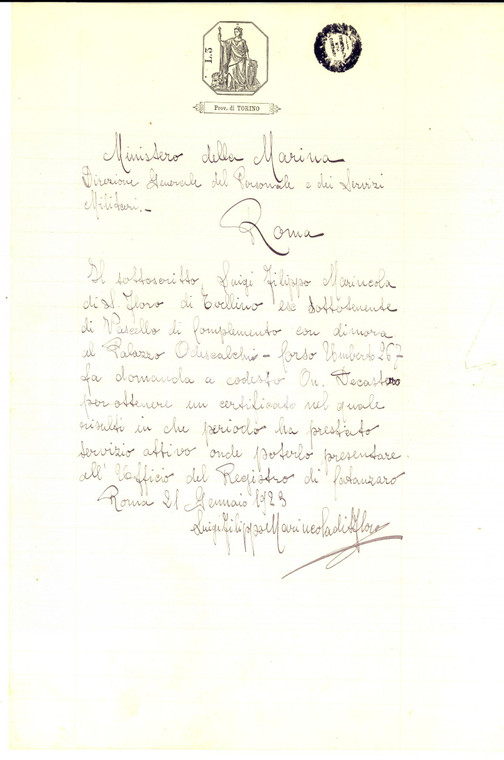 L.3
Prov. di TORINO
Ministero della Marina
Direzione Generale del Personale e dei Servizi
Militari.-
Roma
Il sottoscritto, Luigi Filippo Marincola
di S. Floro di Tonino ex sottotenente
di Vascello di Complemento con dimora
al Palazzo Odescalchi - Corso Umberto 267
fa domanda a codesto On. Dicastero
per ottenere un certificato nel quale
risulti in che periodo ha prestato
servizio attivo onde poterlo presentare
all' Ufficio del Registro di Catanzaro
Roma 21 Gennaio 1923
Luigi Filippo Marincola di S. Floro